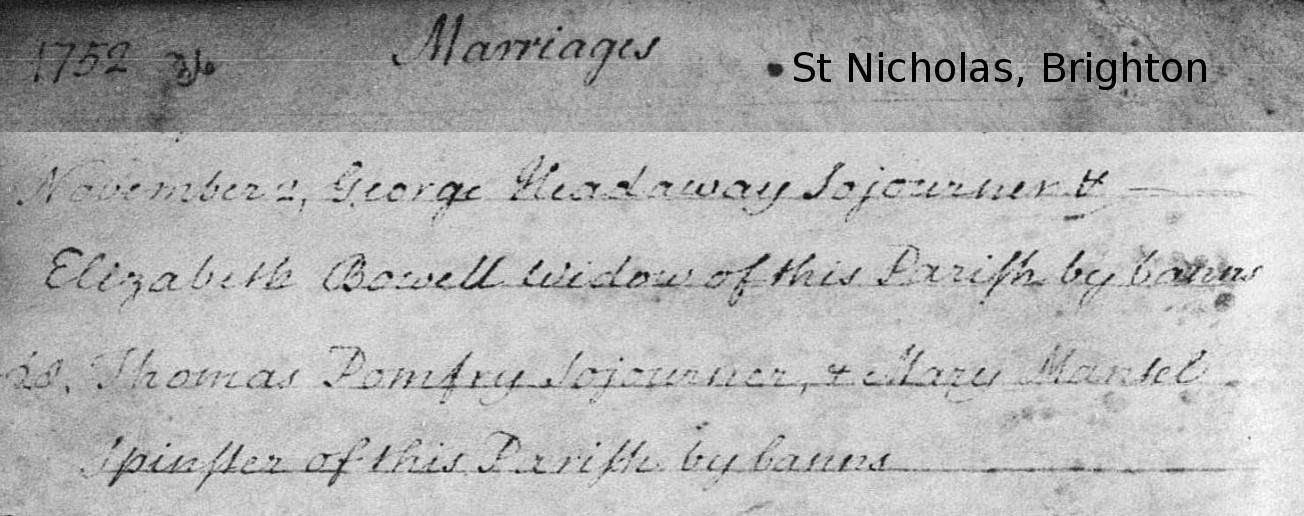 1752 Marriages
St Nicholas, Brighton
November 2, George Headaway Sojourner &
Elizabeth Bowell Widow of this Pariſh by banns
28. Thomas Pomfry Sojourner, & Mary Mansel
Spinſter of this Pariſh by banns